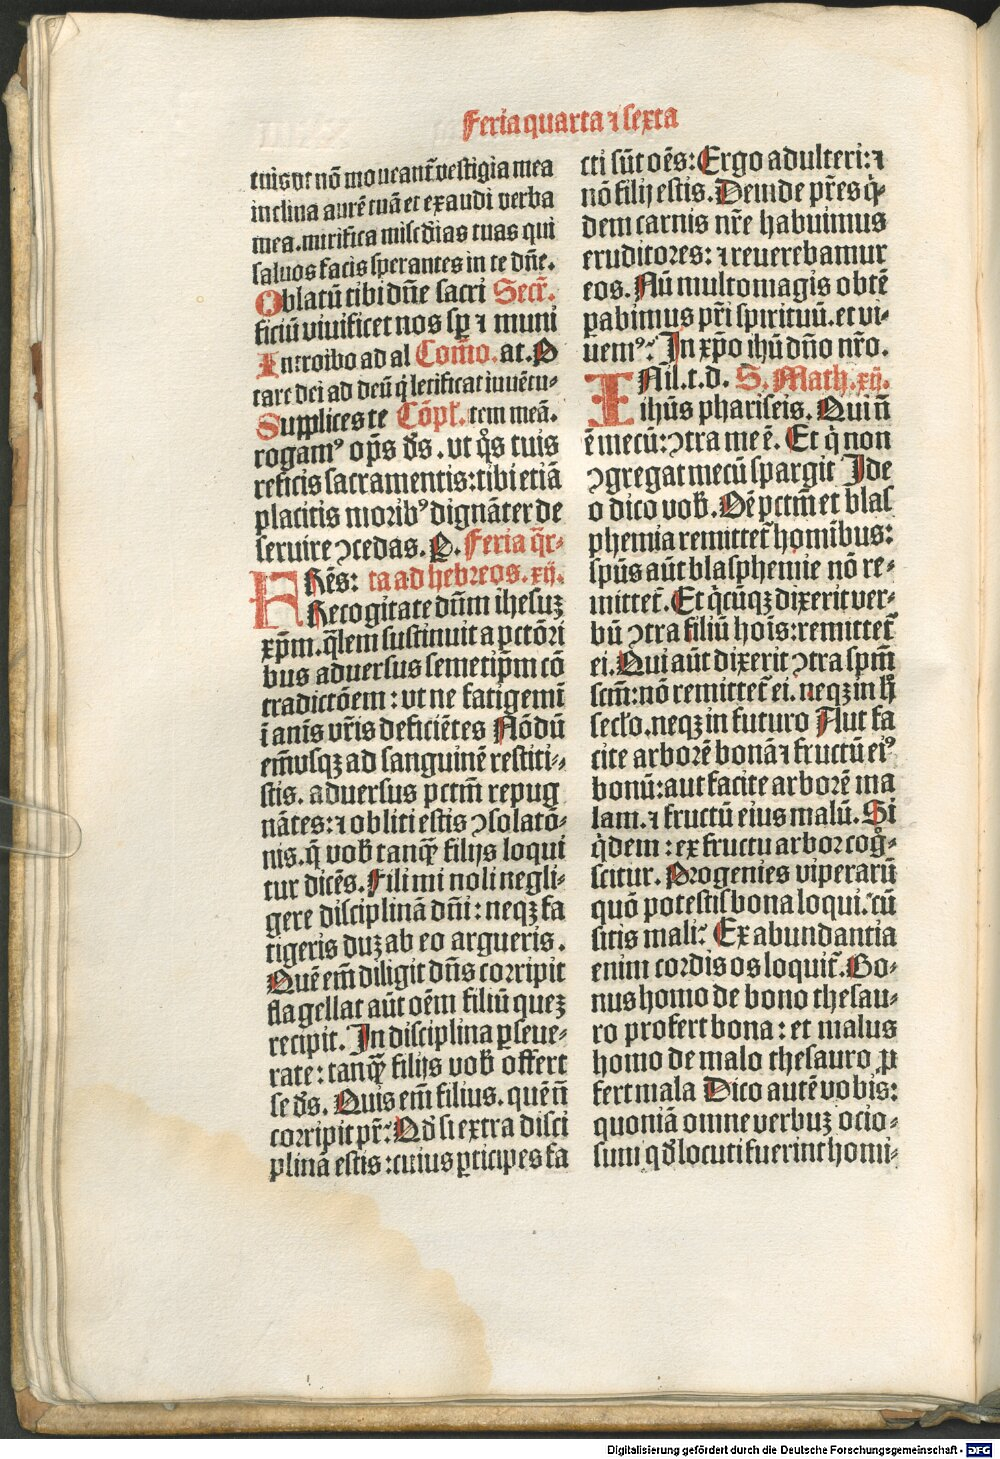 Feria quarta ⁊ sexta
tuis vt nō moueant̄ vestigia mea
inclina aurē tuā et exaudi verba
mea. mirifica misc̄dias tuas qui
saluos facis sperantes in te dn̄e.
Oblatū tibi dn̄e sacri Secr̄.
ficiū viuificet nos sp̄ ⁊ muni
Introibo ad al Com̄o. at. P
tare dei ad deū q̇ letificat iuuētu⸗
Supplices te Cōpl̄. tem meā.
rogam⁹ op̄s ds̄. vt q̊s tuis
reficis sacramentis: tibi etiā
placitis morib⁹ dignāter de
seruire ꝯcedas. P. Feria q̄r⸗
FRēs: ta ad hebreos. xij.
Recogitate dūm ihesuꝫ
xp̄m. q̄lem sustinuit a pctōri
bus aduersus semetip̄m cō
tradictōem: vt ne fatigemī
ī anīs vr̄is deficiētes Nōdū
em̄ vsqꝫ ad sanguinē restiti⸗
stis. aduersus pctm̄ repug
nātes: ⁊ obliti estis ꝯsolatō⸗
nis. q̄ vob̄ tanqꝫ̄ filijs loqui
tur dicēs. Fili mi noli negli⸗
gere disciplinā dn̄i: neqꝫ fa
tigeris duꝫ ab eo argueris.
Quē em̄ diligit dn̄s corripit
flagellat aūt oēm filiū queꝫ
recipit. In disciplina ꝑseue⸗
rate: tanqꝫ̄ filijs vob̄ offert
se ds̄. Quis em̄ filius. quē n̄
corripit pr̄: Qd̄ si extra disci
plinā estis: cuius ꝑticipes fa
cti sūt oēs: Ergo adulteri: ⁊
nō filij estis. Deinde pr̄es q̇⸗
dem carnis nr̄e habuimus
eruditores: ⁊ reuerebamur
eos. Nū multomagis obtē
pabimus pr̄i spirituū. et vi⸗
uem⁹: In xp̄o ihū dn̄o nr̄o.
INil. t. d. S. Math. xij.
ihūs phariseis. Qui n̄
ē mecū: ꝯtra me ē. Et q̇ non
ꝯgregat mecū spargit Ide
o dico vob̄. Oē pctm̄ et blas
phemia remittet̄ hominibus:
spūs aūt blasphemie nō re⸗
mittet̄. Et q̇cūqꝫ dixerit ver⸗
bū ꝯtra filiū hoīs: remittet̄
ei. Qui aūt dixerit ꝯtra spm̄
scm̄: nō remittet̄ ei. neqꝫ in h̊
secl̄o. neqꝫ in futuro Aut fa
cite arborē bonā ⁊ fructū ei⁹
bonū: aut facite arborē ma
lam. ⁊ fructū eius malū. Si
q̇dem: ex fructu arbor cog̊⸗
scitur. Progenies viperarū
quō potestis bona loqui. cū
sitis mali: Ex abundantia
enim cordis os loquit̄. Bo⸗
nus homo de bono thesau⸗
ro profert bona: et malus
homo de malo thesauro ꝓ
fert mala Dico autē vobis:
quoniā omne verbuꝫ ocio⸗
sum qd̄ locuti fuerint homi⸗
Digitalisierung gefördert durch die Deutsche Forschungsgemeinschaft - DFG